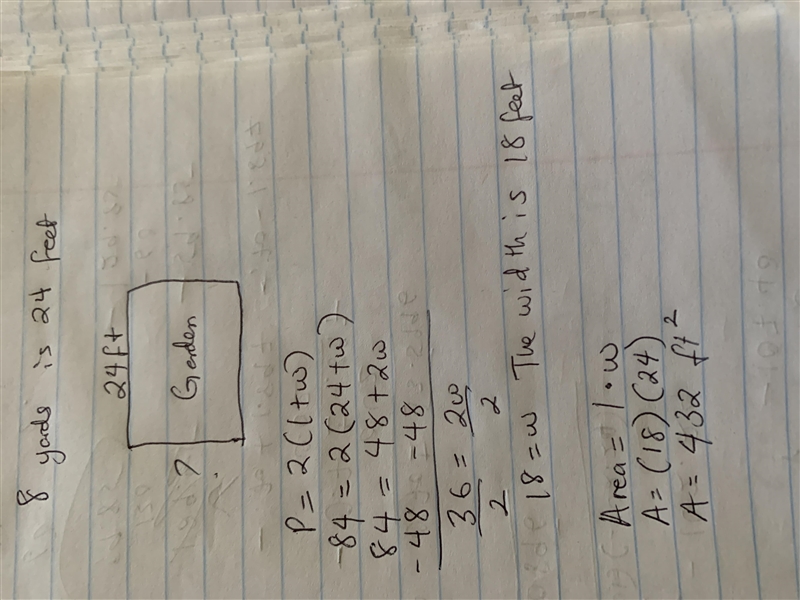 8 yards is 24 feet
24ft
? Garden
P = 2(l+w)
84 = 2(24+w)
84 = 48+2w
-48 -48
36 = 2w
2 2
18 = w The width is 18 feet
Area = l • w
A = (18)(24)
A = 432 ft²